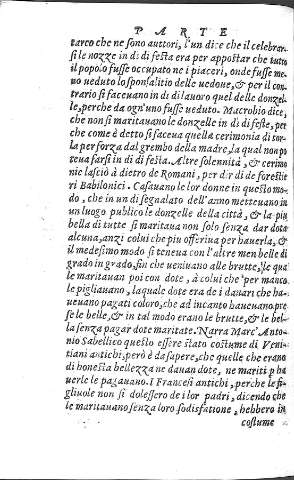 PARTE
tarco che ne sono auttori, l'un dice che il celebrar-
si le nozze in dì di festa era per appostar che tutto
il popolo fusse occupato ne i piaceri, onde fusse me-
no ueduto lo sponsalitio delle uedoue, & per il con-
trario si faceuano in dì di lauoro quel delle donzel-
le, perche da ogn'uno fusse ueduto. Macrobio dice,
che non si maritauano le donzelle in dì di feste, per
che come è detto si faceua quella cerimonia di tor-
la per forza dal grembo della madre, la qual non po
teua farsi in dì di festa. Altre solennità, & cerimo
nie lasciò à dietro de Romani, per dir di de foresti-
eri Babilonici. Casauano le lor donne in questo mo-
do, che in un dì segnalato dell'anno metteuano in
un luogo publico le donzelle della città, & la più
bella di tutte si maritaua non solo senza dar dota
alcuna, anzi colui che piu offeriua per hauerla, & il
il medesimo modo si teneua con l'altre men belle di
grado in grado, fin che ueniuano alle brutte, le qua
le maritauan poi con dote, à colui che per manco
le pigliauano, laquale dote era de i danari che ha-
ueuano pagati coloro, che ad incanto haueuano pre
se le belle, & in tal modo erano le brutte, & le bel-
la senza pagar dote maritate. Narra Marc'Anto-
nio Sabellico questo essere stato costume di Veni-
tiani antichi, però è da sapere, che quelle che erano
di honesta bellezza ne dauan dote, ne mariti p ha
uerle le pagauano. I Francesi antichi, perche le fi-
gliuole non si dolessero de i lor padri, dicendo che
le maritauano senza loro sodisfatione, hebbero in
costume